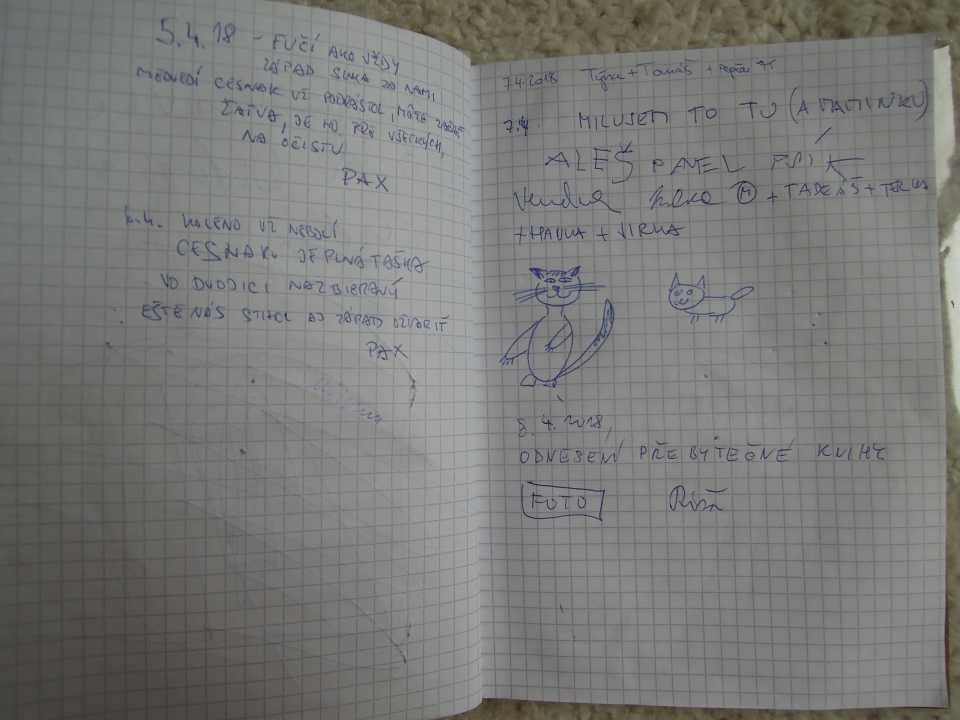 5.4.18 - FUČÍ AKO VŽDY
ZÁPAD SLNKA ZA NAMI
MEDVEDÍ CESNAK UŽ PODRÁSTOL, MÔŽE ZAČAŤ
ŽATVA, JE HO PRE VŠETKÝCH,
NA OČISTU
PAX
6.4. KOLENO UŽ NEBOLÍ
CESNAKU JE PLNÁ TAŠKA
VO DVOJICI NAZBIERANÝ
EŠTE NÁS STIHOL AJ ZÁPAD OŽIARIŤ
PAX
7.4.2018 Týna + Tomáš +
7.4. MILUJEM TO TU (A MAMINKU)
ALEŠ PAVEL PSÍK
Vendula + TADEÁŠ + TERKA
+ HANKA + JIRKA
8.4.2018,
ODNESENÍ PŘEBYTEČNÉ KNIHY
FOTO